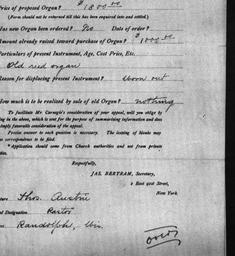 Price of proposed Organ? $1800.00
(Form should not be returned till this has been inquired into and settled.)
Has new Organ been ordered? No Date of order?
Amount already raised toward purchase of Organ? $1000.00
Particulars of present Instrument, Age, Cost Price, Etc.
Old reed organ
Reason for displacing present Instrument? Worn out
How much is to be realized by sale of old Organ? nothing
To facilitate Mr. Carnegie's consideration of your appeal, will you oblige by
ing in the above, which is sent for the purpose of summarizing information and does
imply favorable consideration of the appeal.
Precise answer to each question is necessary. The leaving of blanks may
correspondence to be filed.
* Application should come from Church authorities and not from private
ties.
Respectfully,
JAS. BERTRAM, Secretary,
2 East 91st Street,
New York.
ture Thos. Austin
Designation. Pastor
Randolph, Wis.
over